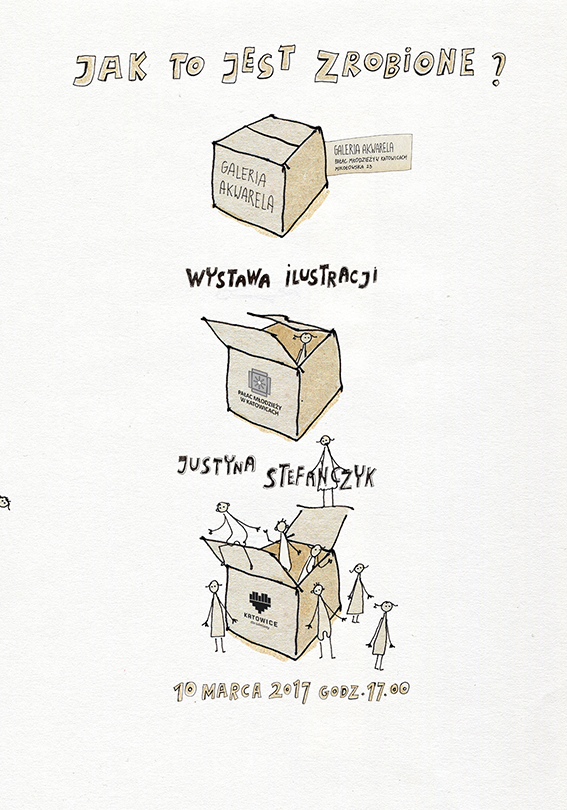 JAK TO JEST ZROBIONE?
GALERIA
AKWARELA
GALERIA AKWARELA
PAŁAC MŁODZIEŻY W KATOWICACH
MIKOŁOWSKA 26
WYSTAWA ILUSTRACJI
PAŁAC MŁODZIEŻY
W KATOWICACH
JUSTYNA STEFAŃCZYK
KATOWICE
10 MARCA 2017 GODZ.17.00